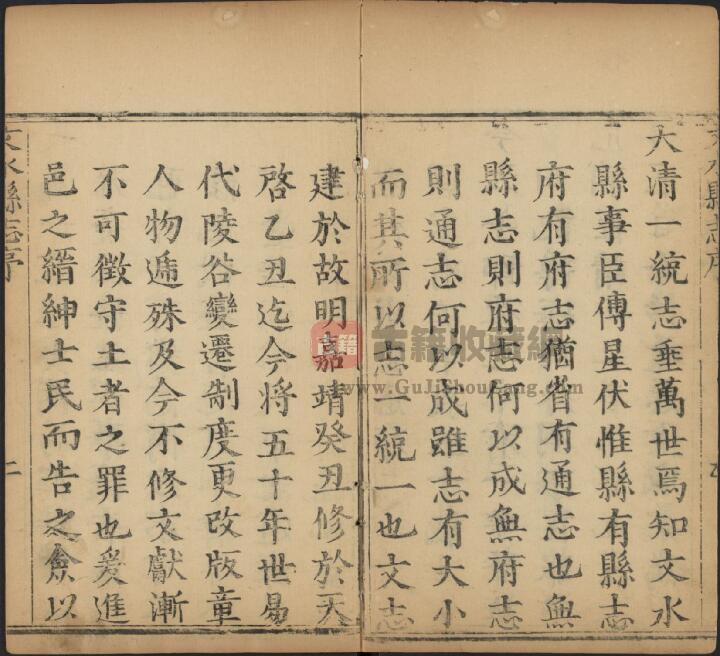 大清一統志垂萬世焉知文水
縣事臣傅星伏惟縣有縣志
府有府志猶省有通志也無
縣志則府志何以成無府志
則通志何以成雖志有大小
而其所以志一統一也文志
建於故明嘉靖癸丑修於天
啓乙丑迄今將五十年世易
代陵谷變遷制度更改版章
人物遞殊及今不修文獻漸
不可徵守土者之罪也爰進
邑之縉紳士民而告之僉以
文水縣志序
二
古籍收藏網
www.GuJiShouCang.com